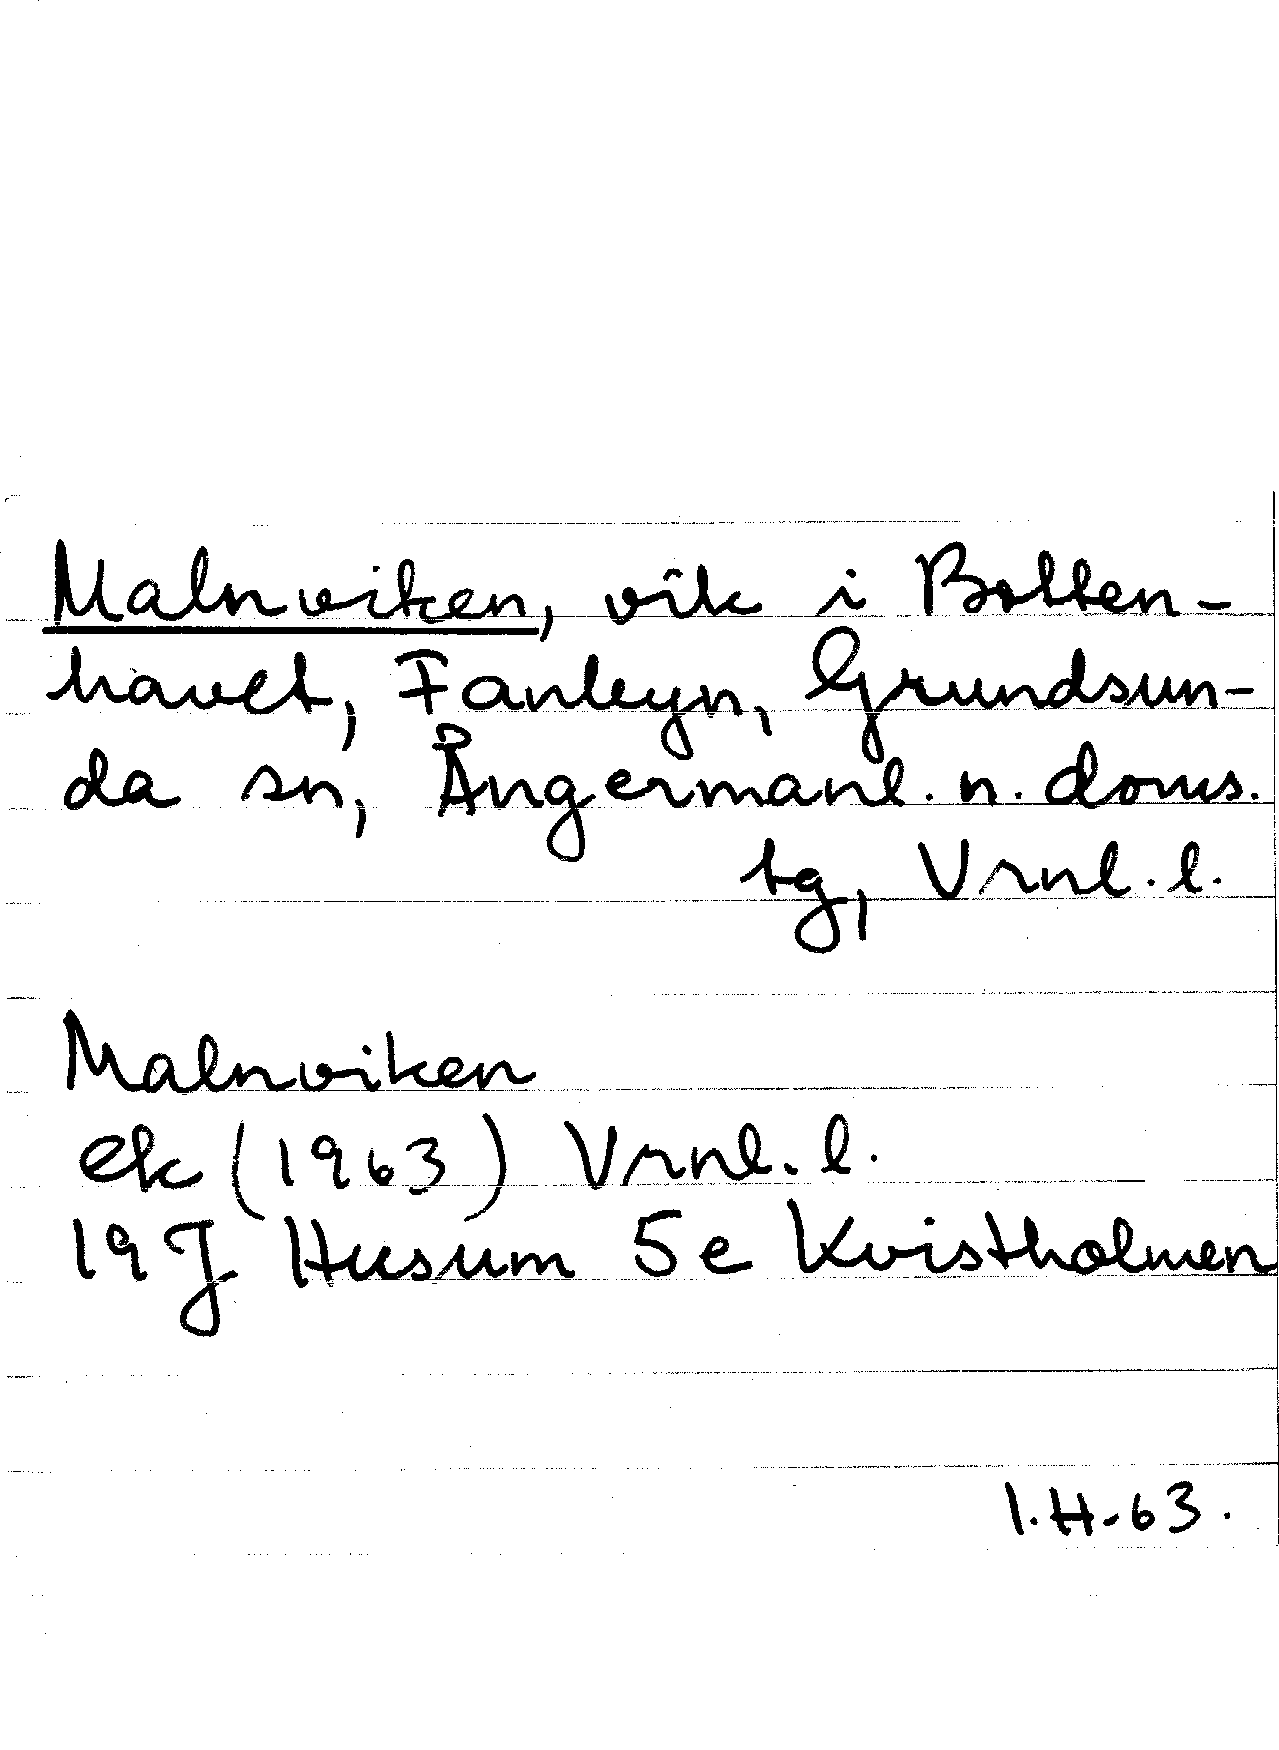 Malnviken, vik i Botten-
havet, Fanbyn, Grundsun-
da sn, Ångermanl. n. doms.
tg, Vrnl. l.
Malnviken
ek (1963) Vrnl. l.
19J Husum 5e Kvistholmen
I.H-63.